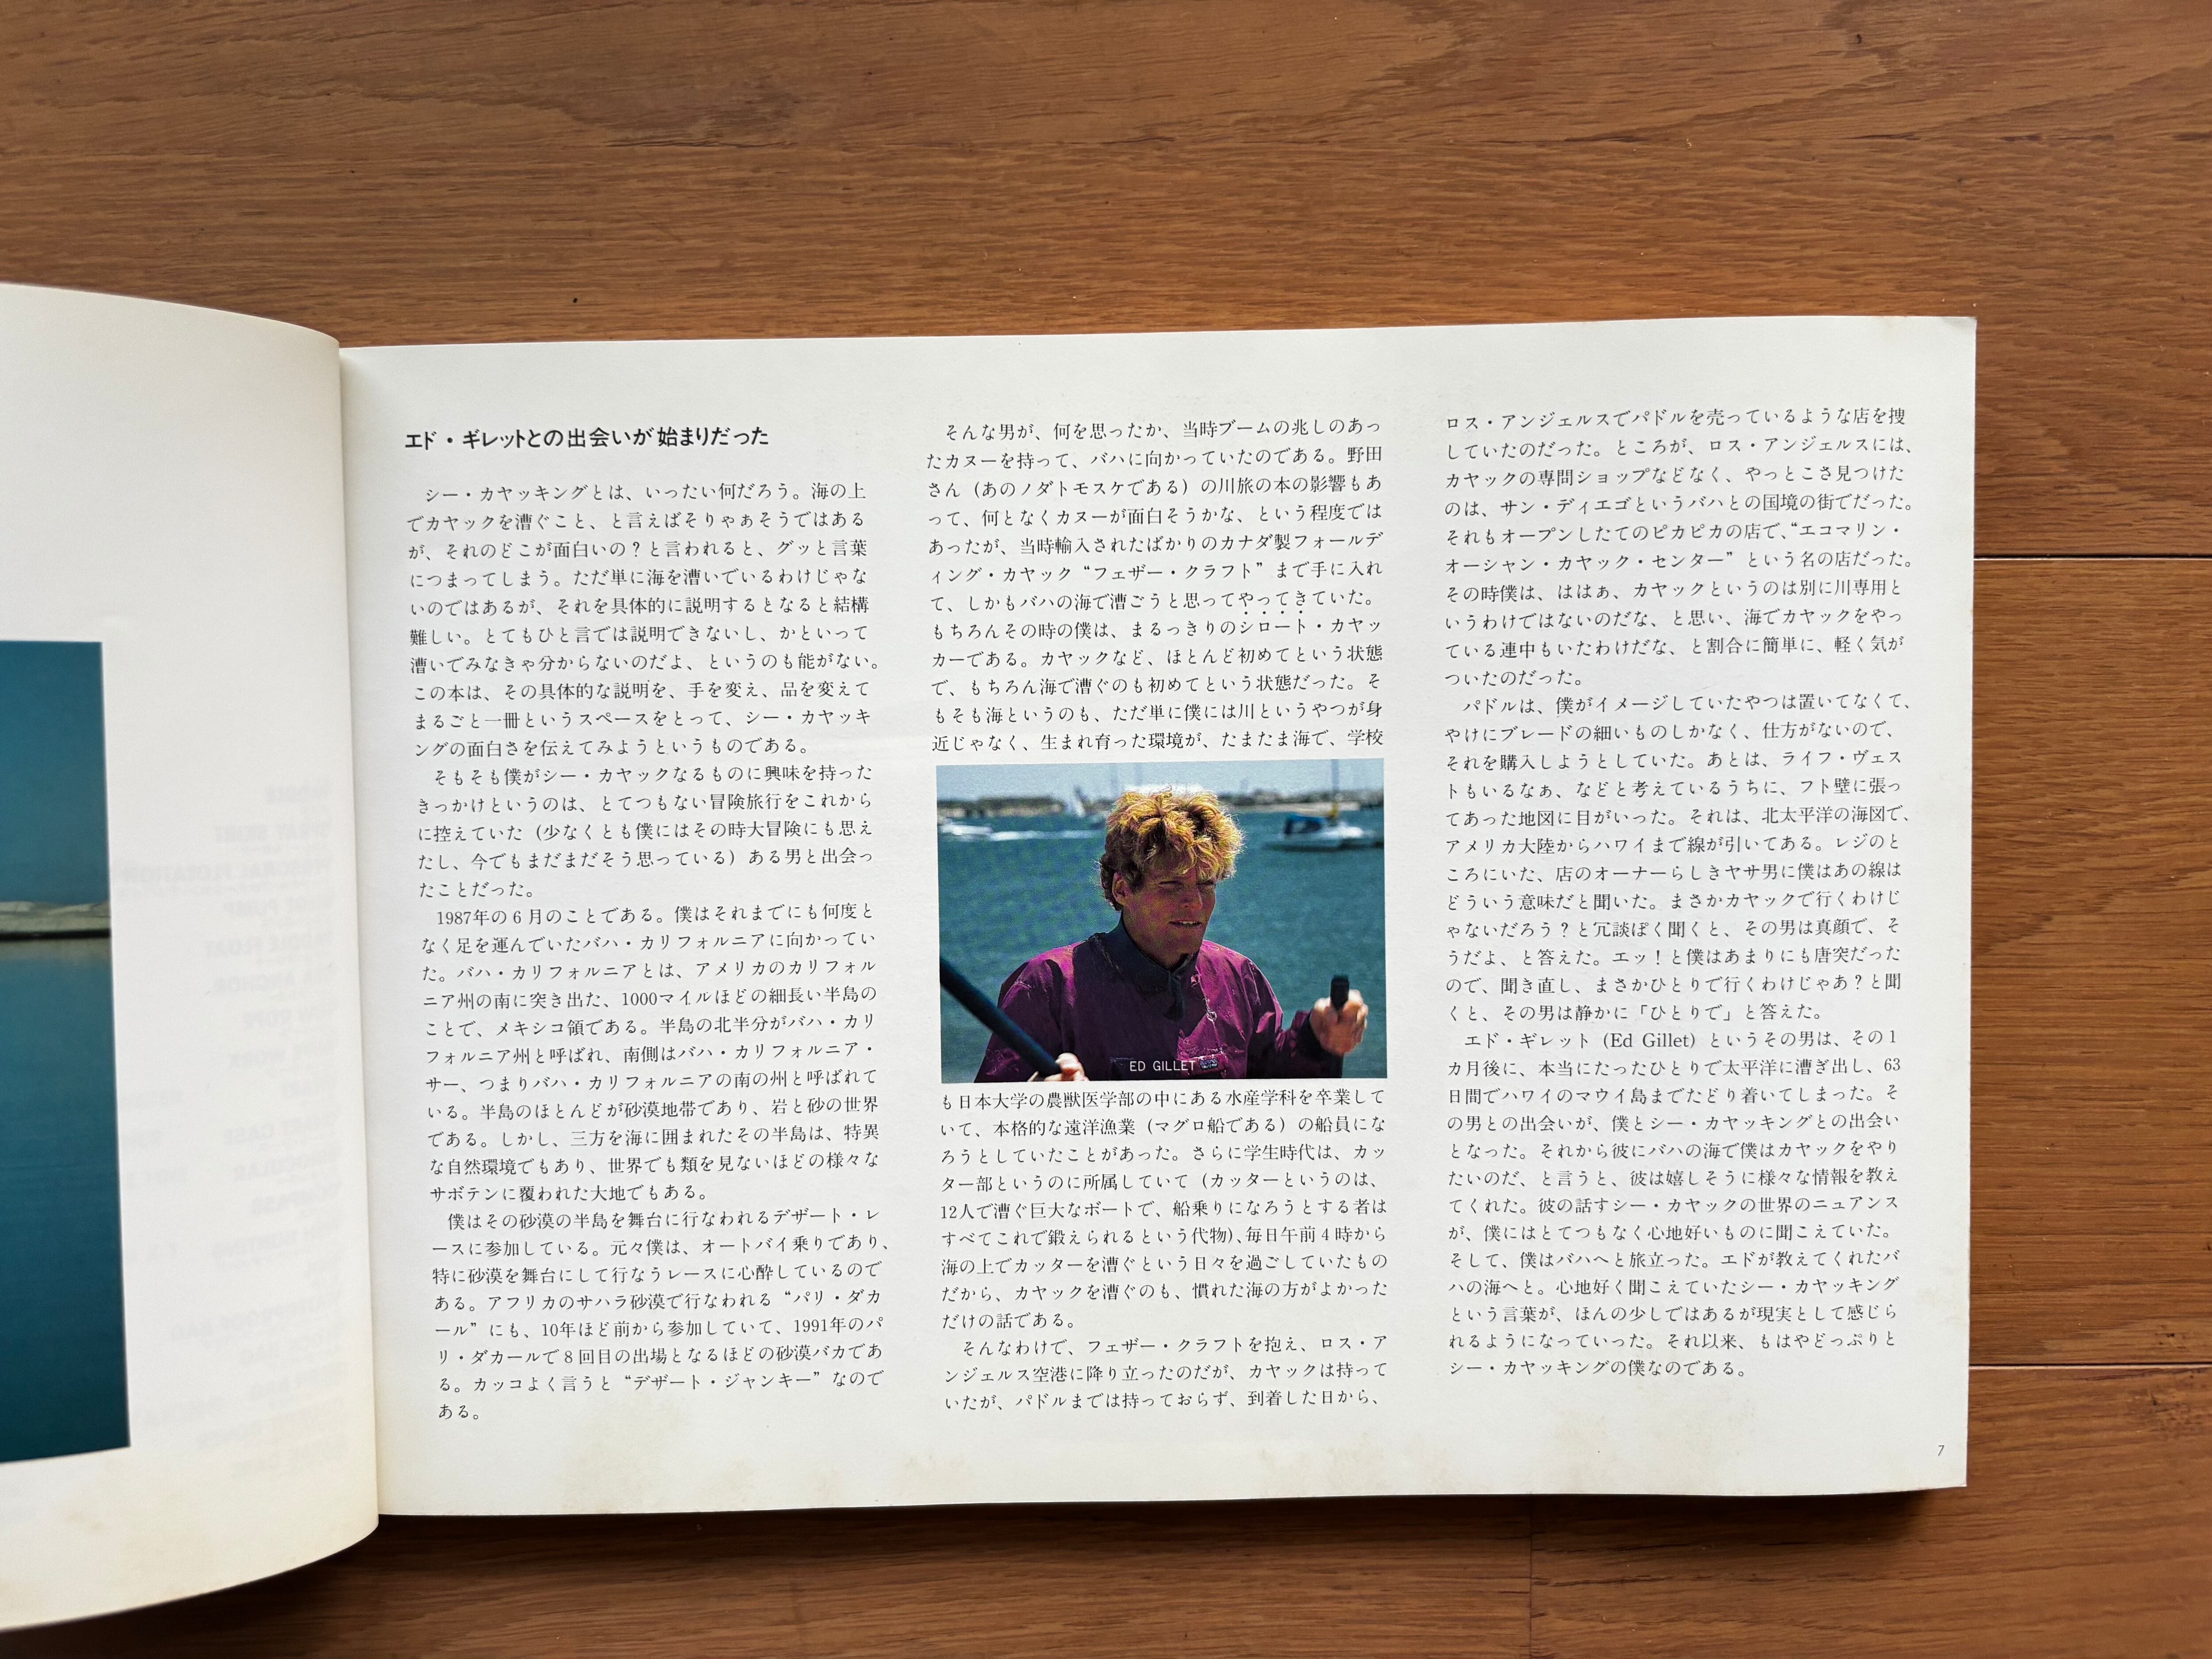 エド・ギレットとの出会いが始まりだった
シー・カヤッキングとは、いったい何だろう。海の上
でカヤックを漕ぐこと、と言えばそりゃぁそうではある
が、それのどこが面白いの？と言われると、グッと言葉
につまってしまう。ただ単に海を漕いでいるわけじゃな
いのではあるが、それを具体的に説明するとなると結構
難しい。とてもひと言では説明できないし、かといって
漕いでみなきゃ分からないのだよ、というのも能がない。
この本は、その具体的な説明を、手を変え、品を変えて
まるごと一冊というスペースをとって、シー・カヤッキ
ングの面白さを伝えてみようというものである。
そもそも僕がシー・カヤックなるものに興味を持った
きっかけというのは、とてつもない冒険旅行をこれから
に控えていた（少なくとも僕にはその時大冒険にも思え
たし、今でもまだまだそう思っている）ある男と出会っ
たことだった。
1987年の6月のことである。僕はそれまでにも何度と
なく足を運んでいたバハ・カリフォルニアに向かってい
た。バハ・カリフォルニアとは、アメリカのカリフォル
ニア州の南に突き出た、1000マイルほどの細長い半島の
ことで、メキシコ領である。半島の北半分がバハ・カリ
フォルニア州と呼ばれ、南側はバハ・カリフォルニア・
サー、つまりバハ・カリフォルニアの南の州と呼ばれて
いる。半島のほとんどが砂漠地帯であり、岩と砂の世界
である。しかし、三方を海に囲まれたその半島は、特異
な自然環境でもあり、世界でも類を見ないほどの様々な
サボテンに覆われた大地でもある。
僕はその砂漠の半島を舞台に行なわれるデザート・レ
ースに参加している。元々僕は、オートバイ乗りであり、
特に砂漠を舞台にして行なうレースに心酔しているので
ある。アフリカのサハラ砂漠で行なわれる“パリ・ダカ
ール”にも、10年ほど前から参加していて、1991年のパ
リ・ダカールで8回目の出場となるほどの砂漠バカであ
る。カッコよく言うと“デザート・ジャンキー”なので
ある。
そんな男が、何を思ったか、当時ブームの兆しのあっ
たカヌーを持って、バハに向かっていたのである。野田
さん（あのノダトモスケである）の川旅の本の影響もあ
って、何となくカヌーが面白そうかな、という程度では
あったが、当時輸入されたばかりのカナダ製フォールデ
ィング・カヤック“フェザー・クラフト”まで手に入れ
て、しかもバハの海で漕ごうと思ってやってきていた。
もちろんその時の僕は、まるっきりのシロート・カヤッ
カーである。カヤックなど、ほとんど初めてという状態
で、もちろん海で漕ぐのも初めてという状態だった。そ
もそも海というのも、ただ単に僕には川というやつが身
近じゃなく、生まれ育った環境が、たまたま海で、学校
ED GILLET
も日本大学の農獣医学部の中にある水産学科を卒業して
いて、本格的な遠洋漁業（マグロ船である）の船員にな
ろうとしていたことがあった。さらに学生時代は、カッ
ター部というのに所属していて（カッターというのは、
12人で漕ぐ巨大なボートで、船乗りになろうとする者は
すべてこれで鍛えられるという代物）、毎日午前4時から
海の上でカッターを漕ぐという日々を過ごしていたもの
だから、カヤックを漕ぐのも、慣れた海の方がよかった
だけの話である。
そんなわけで、フェザー・クラフトを抱え、ロス・ア
ンジェルス空港に降り立ったのだが、カヤックは持って
いたが、パドルまでは持っておらず、到着した日から、
ロス・アンジェルスでパドルを売っているような店を捜
していたのだった。ところが、ロス・アンジェルスには、
カヤックの専問ショップなどなく、やっとこさ見つけた
のは、サン・ディエゴというバハとの国境の街でだった。
それもオープンしたてのピカピカの店で、“エコマリン・
オーシャン・カヤック・センター”という名の店だった。
その時僕は、ははぁ、カヤックというのは別に川専用と
いうわけではないのだな、と思い、海でカヤックをやっ
ている連中もいたわけだな、と割合に簡単に、軽く気が
ついたのだった。
パドルは、僕がイメージしていたやつは置いてなくて、
やけにブレードの細いものしかなく、仕方がないので、
それを購入しようとしていた。あとは、ライフ・ヴェス
トもいるなぁ、などと考えているうちに、フト壁に張っ
てあった地図に目がいった。それは、北太平洋の海図で、
アメリカ大陸からハワイまで線が引いてある。レジのと
ころにいた、店のオーナーらしきヤサ男に僕はあの線は
どういう意味だと聞いた。まさかカヤックで行くわけじ
ゃないだろう？と冗談ぽく聞くと、その男は真顔で、そ
うだよ、と答えた。エッ！と僕はあまりにも唐突だった
ので、聞き直し、まさかひとりで行くわけじゃあ？と聞
くと、その男は静かに「ひとりで」と答えた。
エド・ギレット（Ed Gillet）というその男は、その1
カ月後に、本当にたったひとりで太平洋に漕ぎ出し、63
日間でハワイのマウイ島までたどり着いてしまった。そ
の男との出会いが、僕とシー・カヤッキングとの出会い
となった。それから彼にバハの海で僕はカヤックをやり
たいのだ、と言うと、彼は嬉しそうに様々な情報を教え
てくれた。彼の話すシー・カヤックの世界のニュアンス
が、僕にはとてつもなく心地好いものに聞こえていた。
そして、僕はバハへと旅立った。エドが教えてくれたバ
ハの海へと。心地好く聞こえていたシー・カヤッキング
という言葉が、ほんの少しではあるが現実として感じら
れるようになっていった。それ以来、もはやどっぷりと
シー・カヤッキングの僕なのである。
7